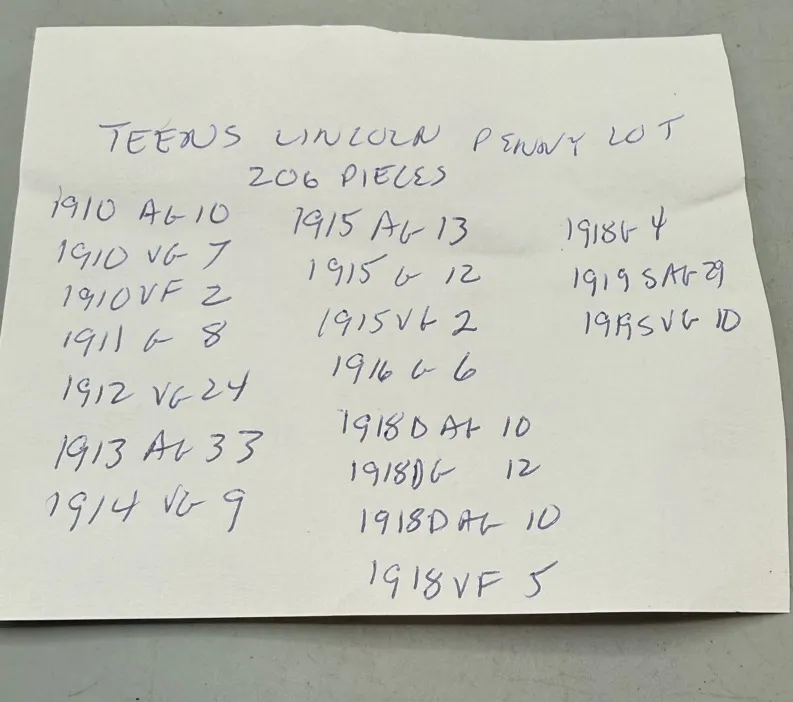 TEENS LINCOLN PENNY LOT
206 PIECES
1910 AG 10
1910 VG 7
1910 VF 2
1911 G 8
1912 VG 24
1913 AG 33
1914 VG 9
1915 AG 13
1915 G 12
1915 VG 2
1916 G 6
1918D AG 10
1918DG 12
1918D AG 10
1918 VF 5
1918G 4
1919 SAG 29
1919S VG 10